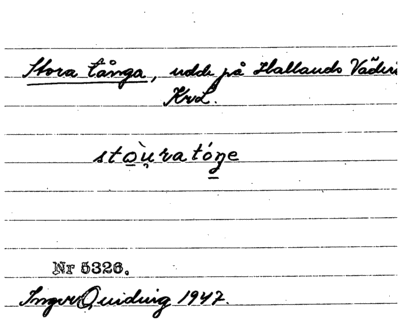 Stora tånga, udde på Hallands Väderö
KrL.
stòu̯ratóŋe
Nr 5326.
Ingvor Quiding 1947.